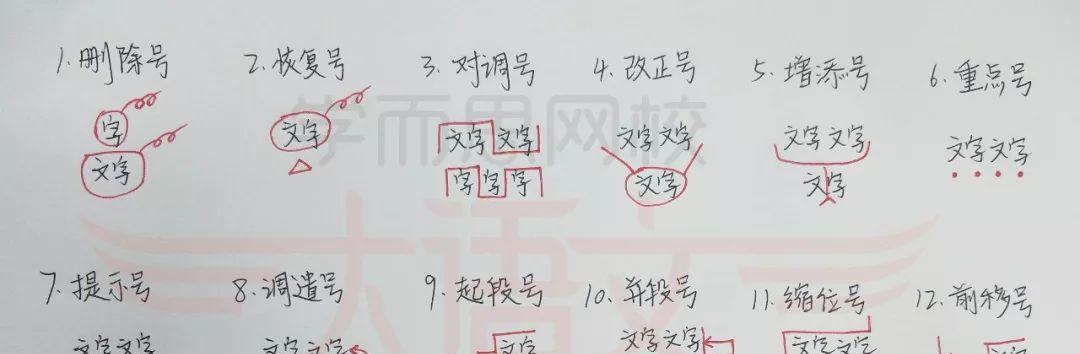 1. 删除号 2. 恢复号 3. 对调号 4. 改正号 5. 增添号 6. 重点号
字 文字 文字 文字 文字 文字 文字 文字 文字
文字 字 字 字 文字 文字 文字 文字
学而思网校
大语文
7. 提示号 8. 调遣号 9. 起段号 10. 并段号 11. 缩位号 12. 前移号
文字文字 文字文字 文字 文字文字 文字文字 文字